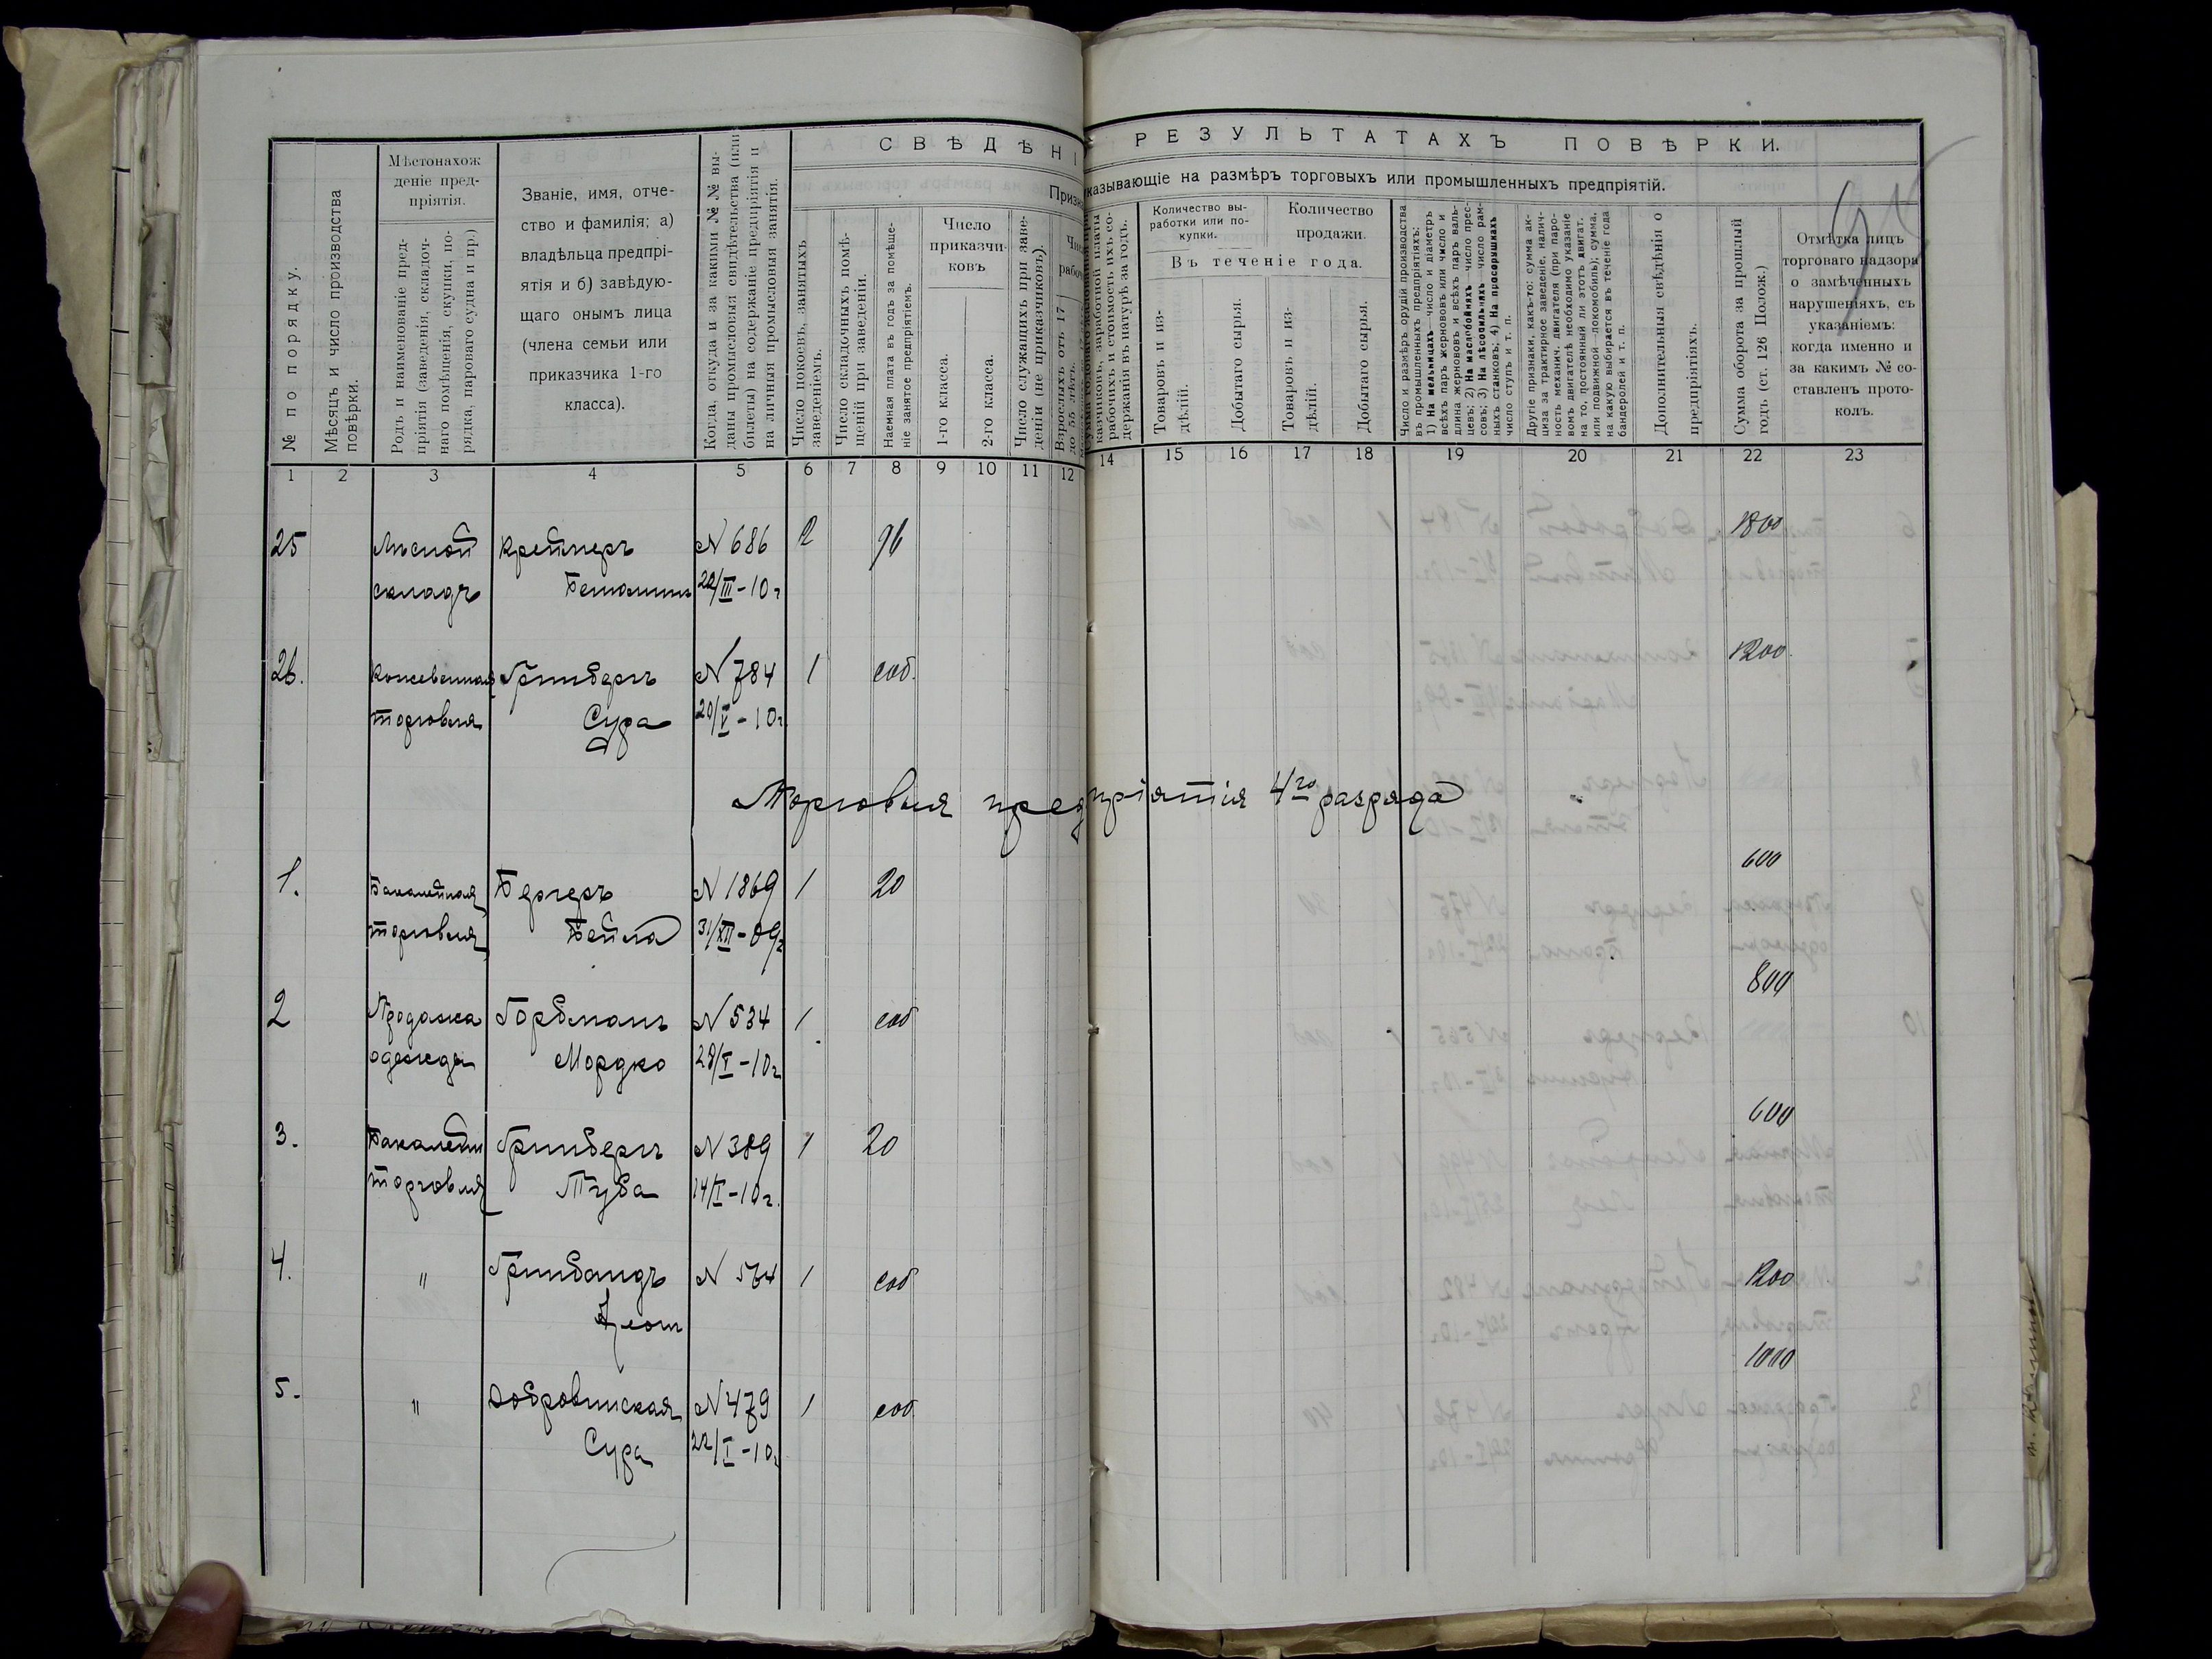 СВѢДѢНІ РЕЗУЛЬТАТАХЪ ПОВѢРКИ.
Призна указывающіе на размѣръ торговыхъ или промышленныхъ предпріятій.
№ по порядку.
Мѣсяцъ и число производства
повѣрки.
Мѣстонахож
деніе пред-
пріятія.
Родъ и наименованіе пред-
пріятія (заведенія, складоч-
наго помѣщенія, скупки, по-
рядка, парового судна и пр.)
Званіе, имя, отче-
ство и фамилія; а)
владѣльца предпрі-
ятія и б) завѣдую-
щаго онымъ лица
(члена семьи или
приказчика 1-го
класса).
Когда, откуда и за какими №№ вы-
даны промысловыя свидѣтельства (или
билеты) на содержаніе предпріятія и
на личныя промысловыя занятія.
Число покоевъ, занятыхъ
заведеніемъ.
Число складочныхъ помѣ-
щеній при заведеніи.
Наемная плата въ годъ за помѣще-
ніе занятое предпріятіемъ.
Число
приказчи-
ковъ
1-го класса.
2-го класса.
Число служащихъ при заве-
деніи (не приказчиковъ).
Взрослыхъ отъ 17
до 55 лѣтъ.
казчиковъ, заработной платы
рабочихъ и стоимость ихъ со-
держанія въ натурѣ за годъ.
Количество вы-
работки или по-
купки.
Количество
продажи.
Въ теченіе года.
Товаровъ и из-
дѣлій.
Добытаго сырья.
Товаровъ и из-
дѣлій.
Добытаго сырья.
Число и размѣръ орудій производства
въ промышленныхъ предпріятіяхъ:
1) На мельницахъ—число и діаметръ
всѣхъ паръ жернововъ или число и
длина жернововъ и всѣхъ паръ валь-
цевъ; 2) На маслобойняхъ—число прес-
совъ; 3) На лѣсопильняхъ—число рам-
ныхъ станковъ; 4) На просорушкахъ
число ступъ и т. п.
Другіе признаки, какъ-то: сумма ак-
циза за трактирное заведеніе, налич-
ность механич. двигателя (при паро-
вомъ двигателѣ необходимо указаніе
на то, постоянный ли этотъ двигат.
или подвижной—локомобиль); сумма,
на какую выбирается въ теченіе года
бандеролей и т. п.
Дополнительныя свѣдѣнія о
предпріятіяхъ.
Сумма оборота за прошлый
годъ (ст. 126 Полож.)
Отмѣтка лицъ
торговаго надзора
о замѣченныхъ
нарушеніяхъ, съ
указаніемъ:
когда именно и
за какимъ № со-
ставленъ прото-
колъ.
1 2 3 4 5 6 7 8 9 10 11 12 14 15 16 17 18 19 20 21 22 23
25 Лѣсной Креймеръ N 686 2 96 1800
складъ Беньоминъ 22/III-10г
26. Кожевенная Гринбергъ N 784 1 соб. 1200
торговля Сура 20/V-10г
Торговыя предпріятія 4го разряда
1. Бакалейная Бергеръ N 1869 1 20 600
торговля Бейла 31/XII-09г
2 Продажа Горбманъ N 534 1 соб 800
одежды Мордко 28/I-10г
3. Бакалейн Гринбергъ N 389 1 20 600
торговля Туба 14/I-10г.
4. " Гринбандъ N 564 1 соб 1200
5. " Добровинская N 479 1 соб 1000
Сура 22/I-10г